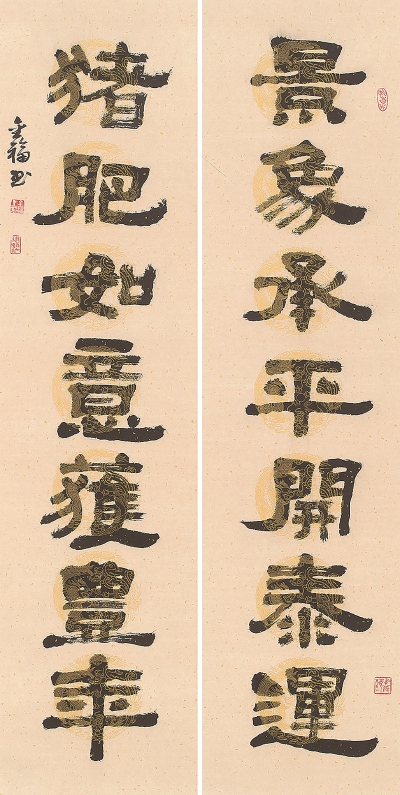 景象承平開泰運
猪肥如意獲豐年